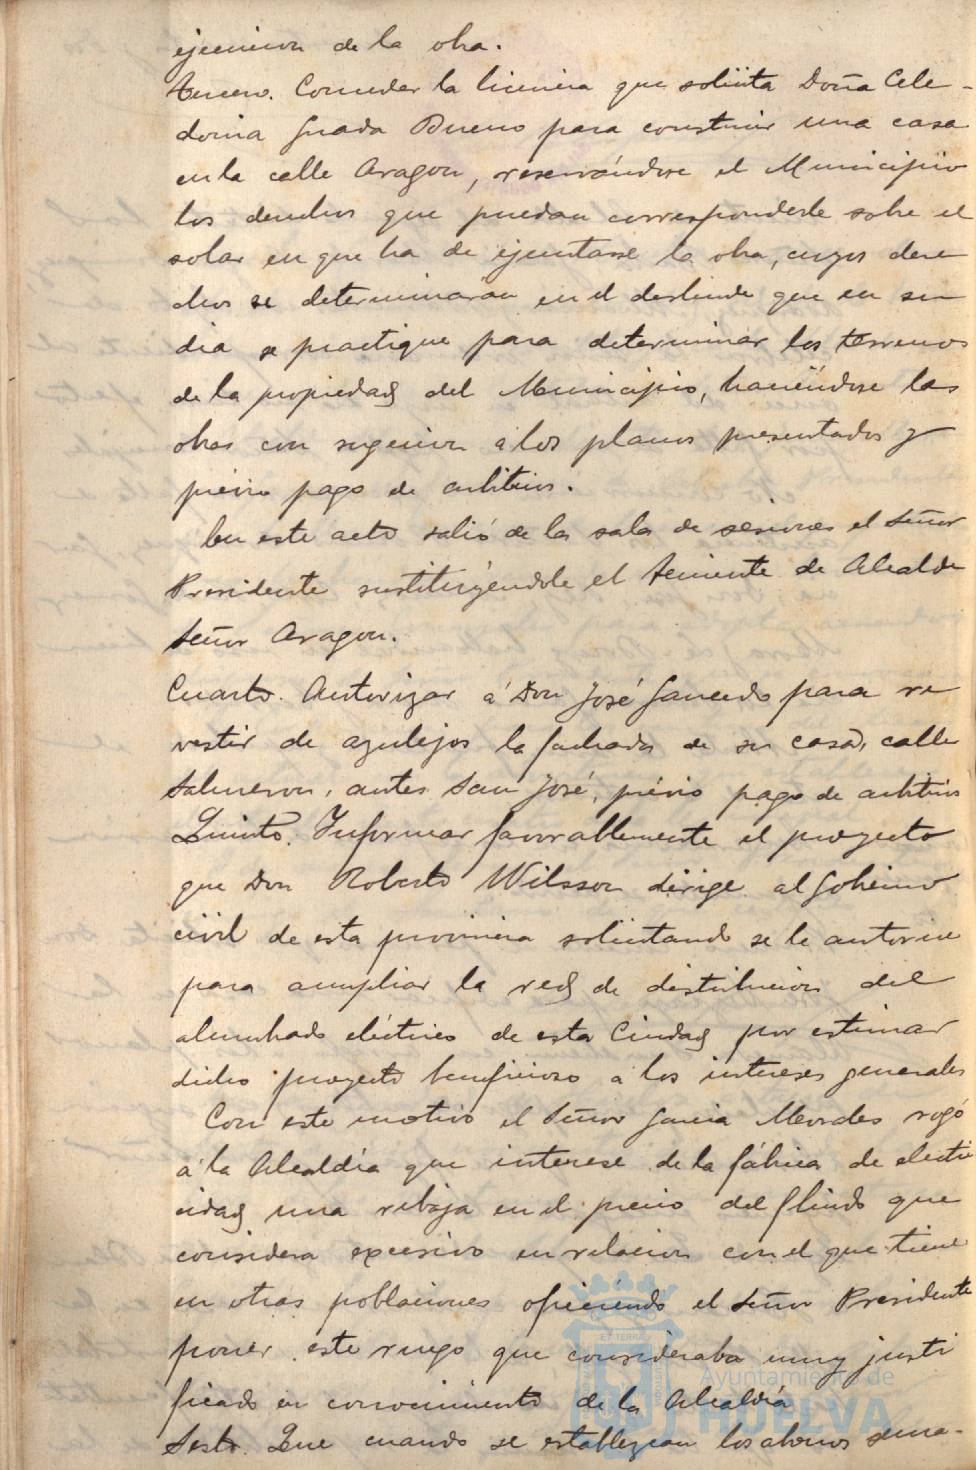 ejecucion de la obra.
Tercero. Conceder la licencia que solicita Doña Cele-
donia Prada Bueno para construir una casa
en la calle Aragon, reservándose el Municipio
los derechos que puedan corresponderle sobre el
solar en que ha de ejecutarse la obra, cuyos dere
chos se determinarán en el deslinde que en su
dia se practique para determinar los terrenos
de la propiedad del Municipio, haciéndose las
obras con sugecion á los planos presentados y
prévio pago de arbitrios.
En este acto salió de la sala de sesiones el Señor
Presidente sustituyéndole el Teniente de Alcalde
Señor Aragon.
Cuarto. Autorizar á Don José Saucedo para re
vestir de azulejos la fachada de su casa, calle
Salmeron, antes San José, prévio pago de arbitrios
Quinto. Informar favorablemente el proyecto
que Don Roberto Wilsson dirige al Gobierno
civil de esta provincia solicitando se le autorice
para ampliar la red de distribucion del
alumbrado eléctrico de esta Ciudad por estimar
dicho proyecto beneficioso á los intereses generales
Con este motivo el Señor Garcia Morales rogó
á la Alcaldía que interese de la fábrica de electri
cidad una rebaja en el precio del fluido que
considera excesivo en relacion con el que tiene
en otras poblaciones ofreciendo el Señor Presidente
poner este ruego que consideraba muy justi
ficado en conocimiento de la Alcaldía
Sesto. Que cuando se establezcan los abonos sema-
Ayuntamiento de
HUELVA